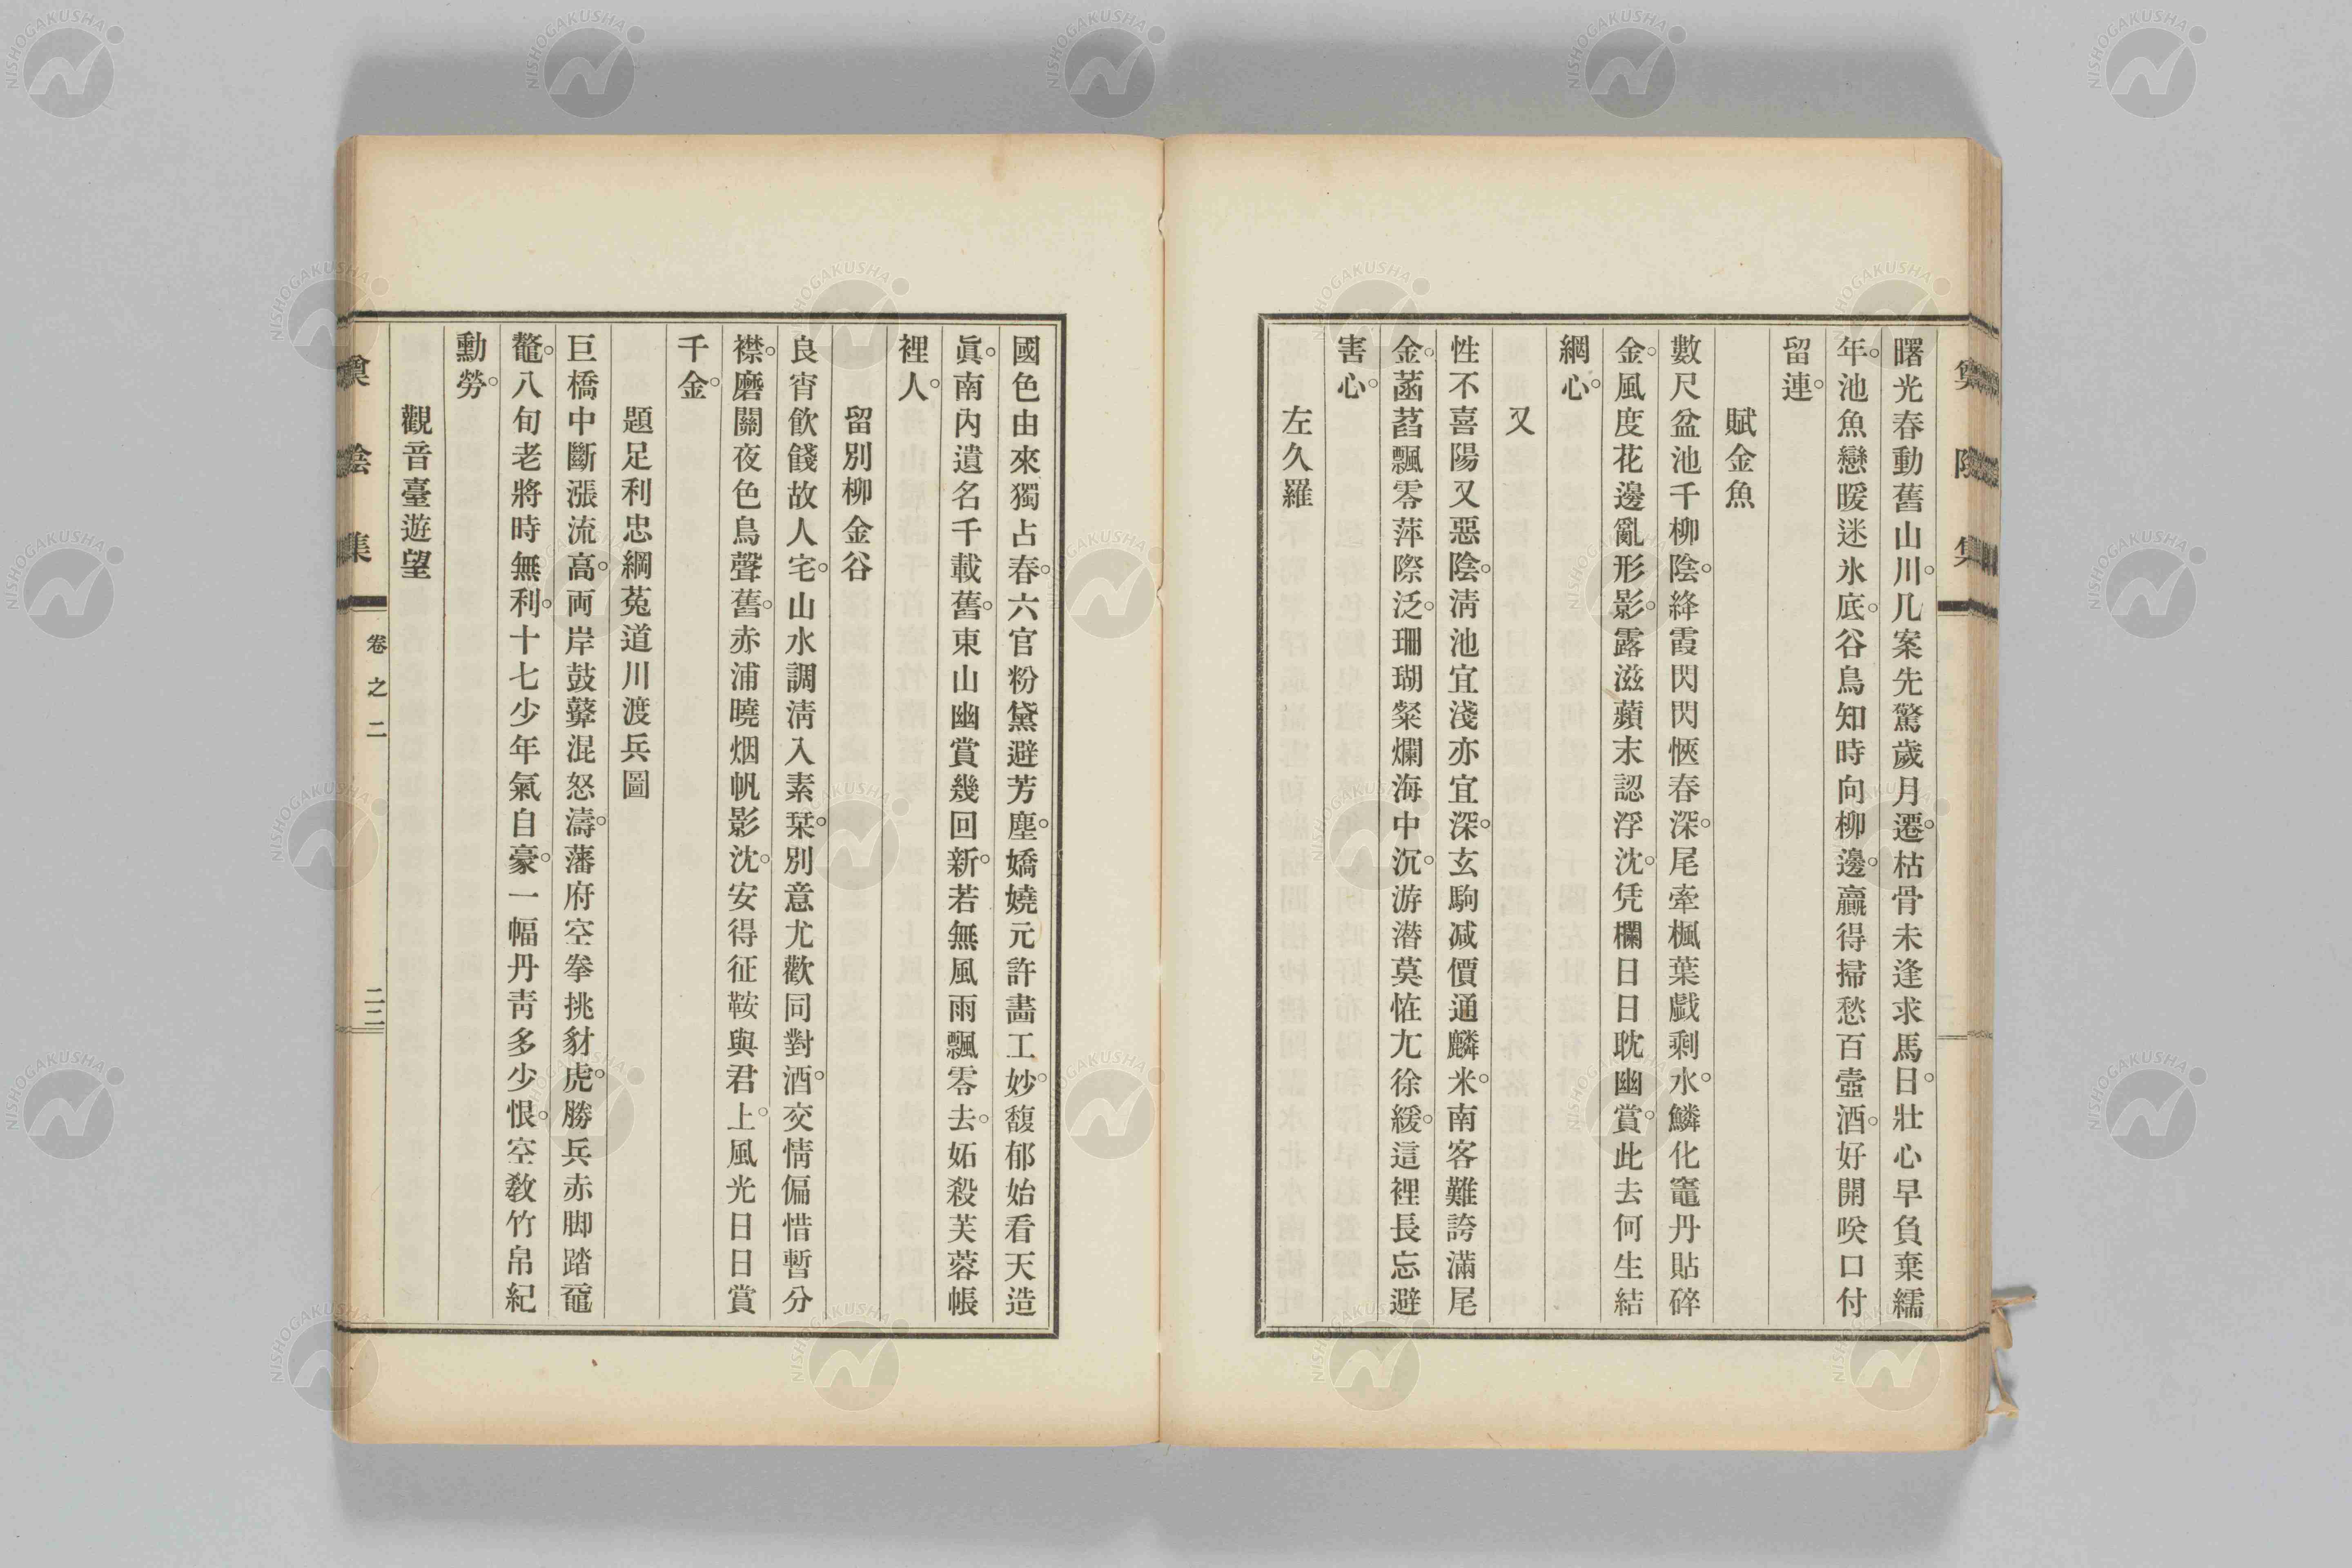 曙光春動舊山川。几案先驚歲月遷。枯骨未逢求馬日。壯心早負棄繻
年。池魚戀暖迷氷底。谷鳥知時向柳邊。贏得掃愁百壺酒。好開咲口付
留連。
賦金魚
數尺盆池千柳陰。絳霞閃閃愜春深。尾牽楓葉戯剩水。鱗化竈丹貼碎
金。風度花邊亂形影。露滋蘋末認浮沈。凭欄日日耽幽賞。此去何生結
網心。
又
性不喜陽又惡陰。淸池宜淺亦宜深。玄駒减價通麟米。南客難誇滿尾
金。菡萏飄零萍際泛。珊瑚粲爛海中沉。游潜莫恠尢徐緩。這裡長忘避
害心。
左久羅
國色由來獨占春。六宮粉黛避芳塵。嬌嬈元許畵工妙。馥郁始看天造
眞。南內遺名千載舊。東山幽賞幾回新。若無風雨飄零去。妬殺芙蓉帳
裡人。
留別柳金谷
良宵飮餞故人宅。山水調淸入素琹。別意尤歡同對酒。交情偏惜暫分
襟。磨關夜色鳥聲舊。赤浦曉烟帆影沈。安得征鞍與君上。風光日日賞
千金。
題足利忠綱菟道川渡兵圖
巨橋中斷漲流高。両岸鼓鼙混怒濤。藩府空拳挑豺虎。勝兵赤脚踏黿
鼇。八旬老將時無利。十七少年氣自豪。一幅丹靑多少恨。空敎竹帛紀
勳勞。
觀音臺遊望
卷之二
二二
NISHOGAKUSHA